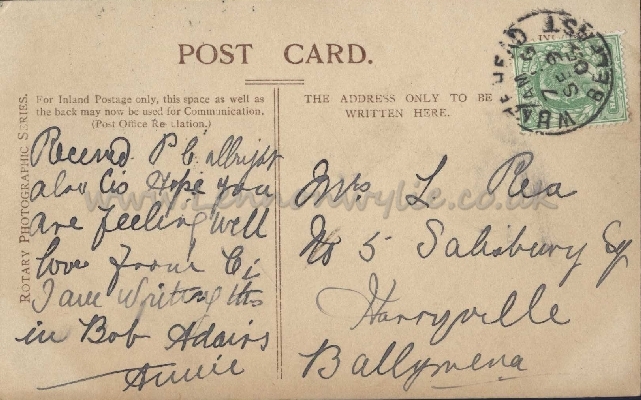 POST CARD.
ROTARY PHOTOGRAPHIC SERIES.
For Inland Postage only, this space as well as
the back may now be used for Communication.
(Post Office Regulation.)
THE ADDRESS ONLY TO BE
WRITTEN HERE.
Received P.C. allright
also Cis Hope you
are feeling well
love from Ci
I am writing this
in Bob Adairs
Annie
Mrs L Rea
No 5 Salisbury Sq
Harryville
Ballymena
www.lennonwylie.co.uk
BELFAST